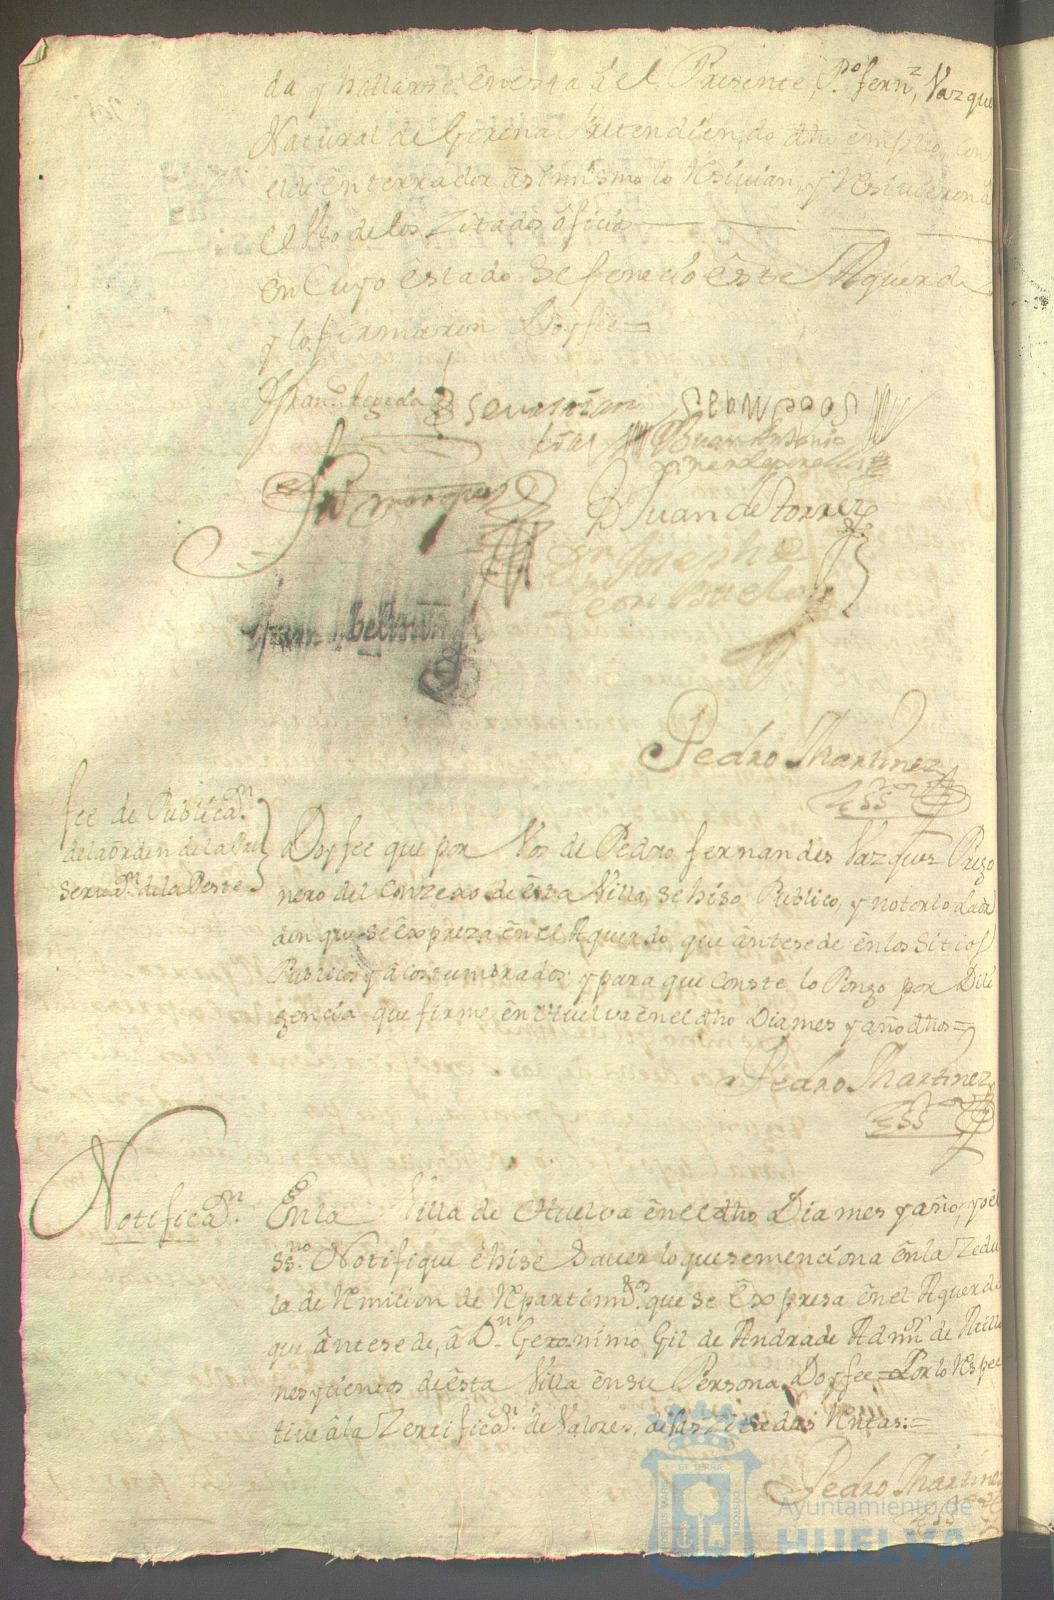 da y hallarse en esta v.ª el Presente, P.º fern.z Vazque
Natural de Gerena Pretendiendo dho empleo, con
el de enterrador asimismo lo Resiuian, y Resiuieron a
el Uso de los Zitados ofisios
en Cuyo estado se fenecio este Aquerdo
y lo firmaron Doyfee=
Fran.co Zepeda
Seuastian
Juan Antonio
D Juan de torrez
Marquez
Dn Joseph de
Leon Buelo
Fran. Beltran
Pedro Martinez
ess.no
fee de Publica.n
de la orden de la Pre
serua.n de la Peste
Doyfee que por Vos de Pedro fernandes Vazques Prego
nero del Conzexo de esta Villa, se hiso Publico, y notorio la or
den que se expreza en el Aquerdo que antesede en los Sitios
Publicos y acostumbrados: y para que Conste lo Pongo por Dili
gencia que firme en Huelva en el dho Dia mes y año dhos=
Pedro Martinez
ess.no
Notifica.n
En la Villa de Huelva en el dho Dia mes y año, yo el
Ss.no Notifique e hise Sauer lo que se menciona en la Zedu
la de Remicion de Repartim.tos que se Expresa en el Aquerdo
que antesede, a D.n Geronimo Gil de Andrade Adm.or de Millo
nes y cientos de esta Villa en su Persona Doyfee= Por lo Respec
tiue a la Zertifica.n de Valores, de las Zitadas Rentas:=
Pedro Martinez
ess.no
Ayuntamiento de
HUELVA